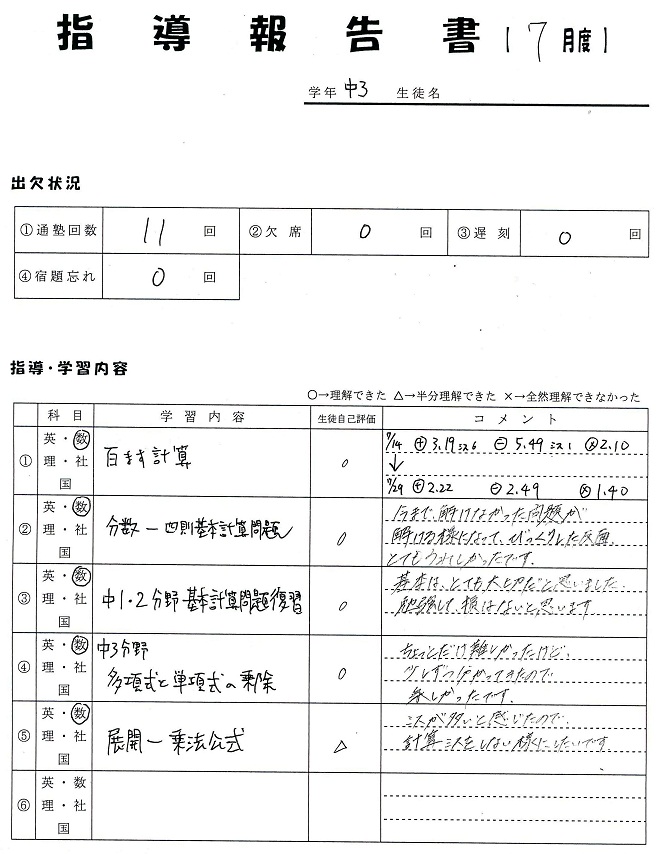 指導報告書【7月度】
学年 中3 生徒名
出欠状況
①通塾回数 11 回 ②欠席 0 回 ③遅刻 0 回
④宿題忘れ 0 回
指導・学習内容
○→理解できた △→半分理解できた ×→全然理解できなかった
科目 学習内容 生徒自己評価 コメント
① 英・数 理・社 国 百ます計算 ○
7/14 ⊕3.19 ミス6 ⊖5.49 ミス1 ⊗2.10
↓
7/29 ⊕2.22 ⊖2.49 ⊗1.40
② 英・数 理・社 国 分数-四則基本計算問題 ○
今まで、解けなかった問題が
解ける様になって、びっくりした反面、
とてもうれしかったです。
③ 英・数 理・社 国 中1・2分野 基本計算問題復習 ○
基本は、とても大切だと思いました。
勉強して、損はないと思います
④ 英・数 理・社 国 中3分野
多項式と単項式の乗除 ○
ちょっとだけ難しかったけど、
少しずつ分かってきたので
楽しかったです。
⑤ 英・数 理・社 国 展開-乗法公式 △
ミスが多いと感じたので、
計算ミスをしない様にしたいです。
⑥ 英・数 理・社 国